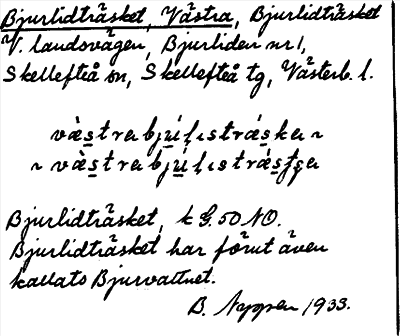 Bjurlidträsket, Västra, Bjurlidträsket
V. landsvägen, Bjurliden nr 1,
Skellefteå sn, Skellefteå tg, Västerb. l.
Bjurlidträsket, k G. 50 NO.
Bjurlidträsket har förut även
kallats Bjurvattnet.
B. Nyppen 1933.